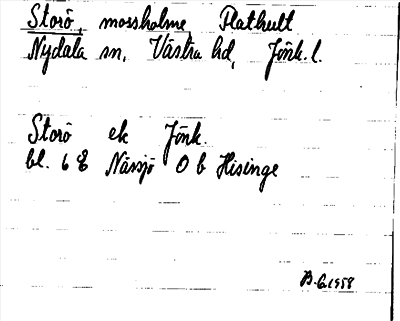 Storö, mossholme, Plathult
Nydala sn, Västra hd, Jönk. l.
Storö ek Jönk.
bl. 6 E Nässjö O b Hisinge
B. G. 1958